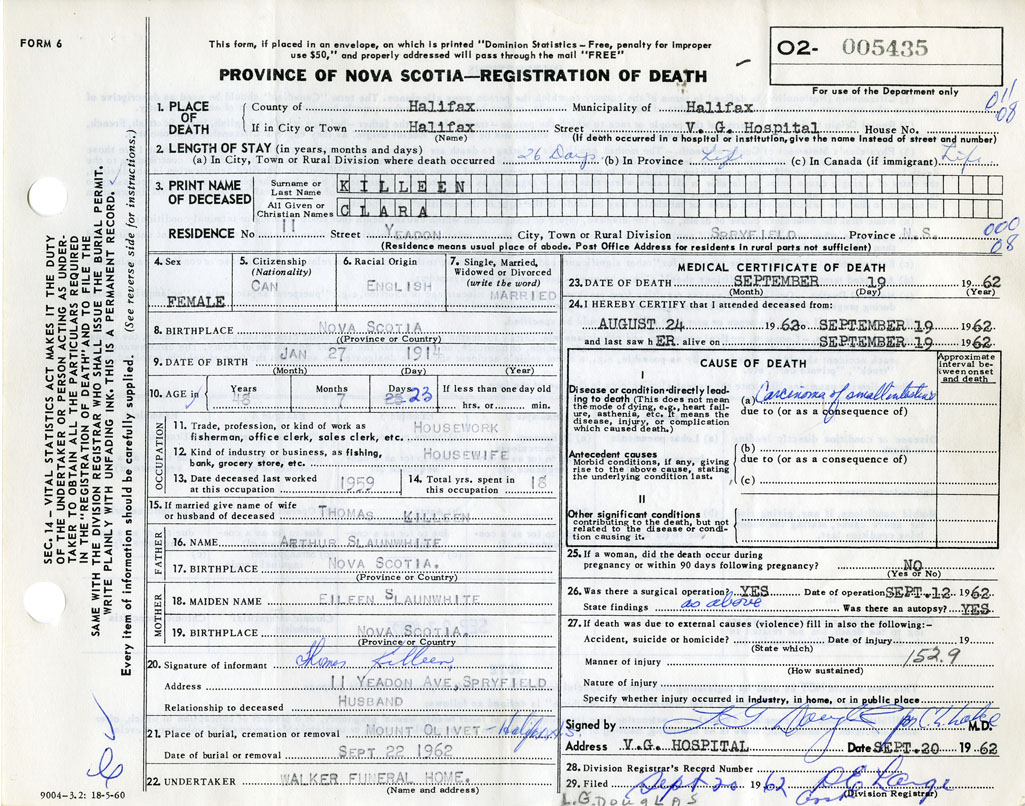 FORM 6
This form, if placed in an envelope, on which is printed "Dominion Statistics – Free, penalty for improper
use $50," and properly addressed will pass through the mail "FREE"
O2- 005435
PROVINCE OF NOVA SCOTIA—REGISTRATION OF DEATH
For use of the Department only
011
08
1. PLACE OF DEATH
County of Halifax Municipality of Halifax
If in City or Town Halifax Street V. G. Hospital House No.
(Name) (If death occurred in a hospital or institution, give the name instead of street and number)
2. LENGTH OF STAY (in years, months and days)
(a) In City, Town or Rural Division where death occurred 26 Days (b) In Province Life (c) In Canada (if immigrant) Life
3. PRINT NAME OF DECEASED
Surname or Last Name KILLEEN
All Given or Christian Names CLARA
RESIDENCE No 11 Street YEADON City, Town or Rural Division SPRYFIELD Province N.S.
(Residence means usual place of abode. Post Office Address for residents in rural parts not sufficient)
000
08
4. Sex FEMALE
5. Citizenship (Nationality) CAN
6. Racial Origin ENGLISH
7. Single, Married, Widowed or Divorced (write the word) MARRIED
8. BIRTHPLACE NOVA SCOTIA
(Province or Country)
9. DATE OF BIRTH JAN 27 1914
(Month) (Day) (Year)
10. AGE in Years 48 Months 7 Days 23 If less than one day old hrs. or min.
OCCUPATION
11. Trade, profession, or kind of work as fisherman, office clerk, sales clerk, etc. HOUSEWORK
12. Kind of industry or business, as fishing, bank, grocery store, etc. HOUSEWIFE
13. Date deceased last worked at this occupation 1959
14. Total yrs. spent in this occupation 18
15. If married give name of wife or husband of deceased THOMAS KILLEEN
FATHER
16. NAME ARTHUR SLAUNWHITE
17. BIRTHPLACE NOVA SCOTIA.
(Province or Country)
MOTHER
18. MAIDEN NAME EILEEN SLAUNWHITE
19. BIRTHPLACE NOVA SCOTIA.
(Province or Country)
20. Signature of informant Thomas Killeen
Address 11 YEADON AVE, SPRYFIELD
Relationship to deceased HUSBAND
21. Place of burial, cremation or removal MOUNT OLIVET – Halifax N.S.
Date of burial or removal SEPT 22 1962
22. UNDERTAKER WALKER FUNERAL HOME.
(Name and address)
MEDICAL CERTIFICATE OF DEATH
23. DATE OF DEATH SEPTEMBER 19 1962
(Month) (Day) (Year)
24. I HEREBY CERTIFY that I attended deceased from:
AUGUST 24 1962 to SEPTEMBER 19 1962
and last saw hER alive on SEPTEMBER 19 1962
CAUSE OF DEATH
Approximate interval between onset and death
I
Disease or condition directly leading to death (This does not mean the mode of dying, e.g., heart failure, asthenia, etc. It means the disease, injury, or complication which caused death.)
(a) Carcinoma of small intestine
due to (or as a consequence of)
Antecedent causes
Morbid conditions, if any, giving rise to the above cause, stating the underlying condition last.
(b)
due to (or as a consequence of)
(c)
II
Other significant conditions
contributing to the death, but not related to the disease or condition causing it.
25. If a woman, did the death occur during pregnancy or within 90 days following pregnancy? NO
(Yes or No)
26. Was there a surgical operation? YES Date of operation SEPT.12 1962
State findings as above Was there an autopsy? YES
27. If death was due to external causes (violence) fill in also the following:–
Accident, suicide or homicide? Date of injury 19
(State which)
Manner of injury 152.9
(How sustained)
Nature of injury
Specify whether injury occurred in industry, in home, or in public place
Signed by M.D.
Address V.G. HOSPITAL Date SEPT.20 1962
28. Division Registrar's Record Number
29. Filed Sept 20 1962
(Division Registrar)
L.G. DOUGLAS
SEC. 14 – VITAL STATISTICS ACT MAKES IT THE DUTY
OF THE UNDERTAKER OR PERSON ACTING AS UNDER-
TAKER TO OBTAIN ALL THE PARTICULARS REQUIRED
IN THE "REGISTRATION OF DEATH" AND FILE THE
SAME WITH THE DIVISION REGISTRAR WHO SHALL ISSUE THE BURIAL PERMIT.
WRITE PLAINLY WITH UNFADING INK – THIS IS A PERMANENT RECORD.
Every item of information should be carefully supplied. (See reverse side for instructions.)
9004–3.2: 18-5-60